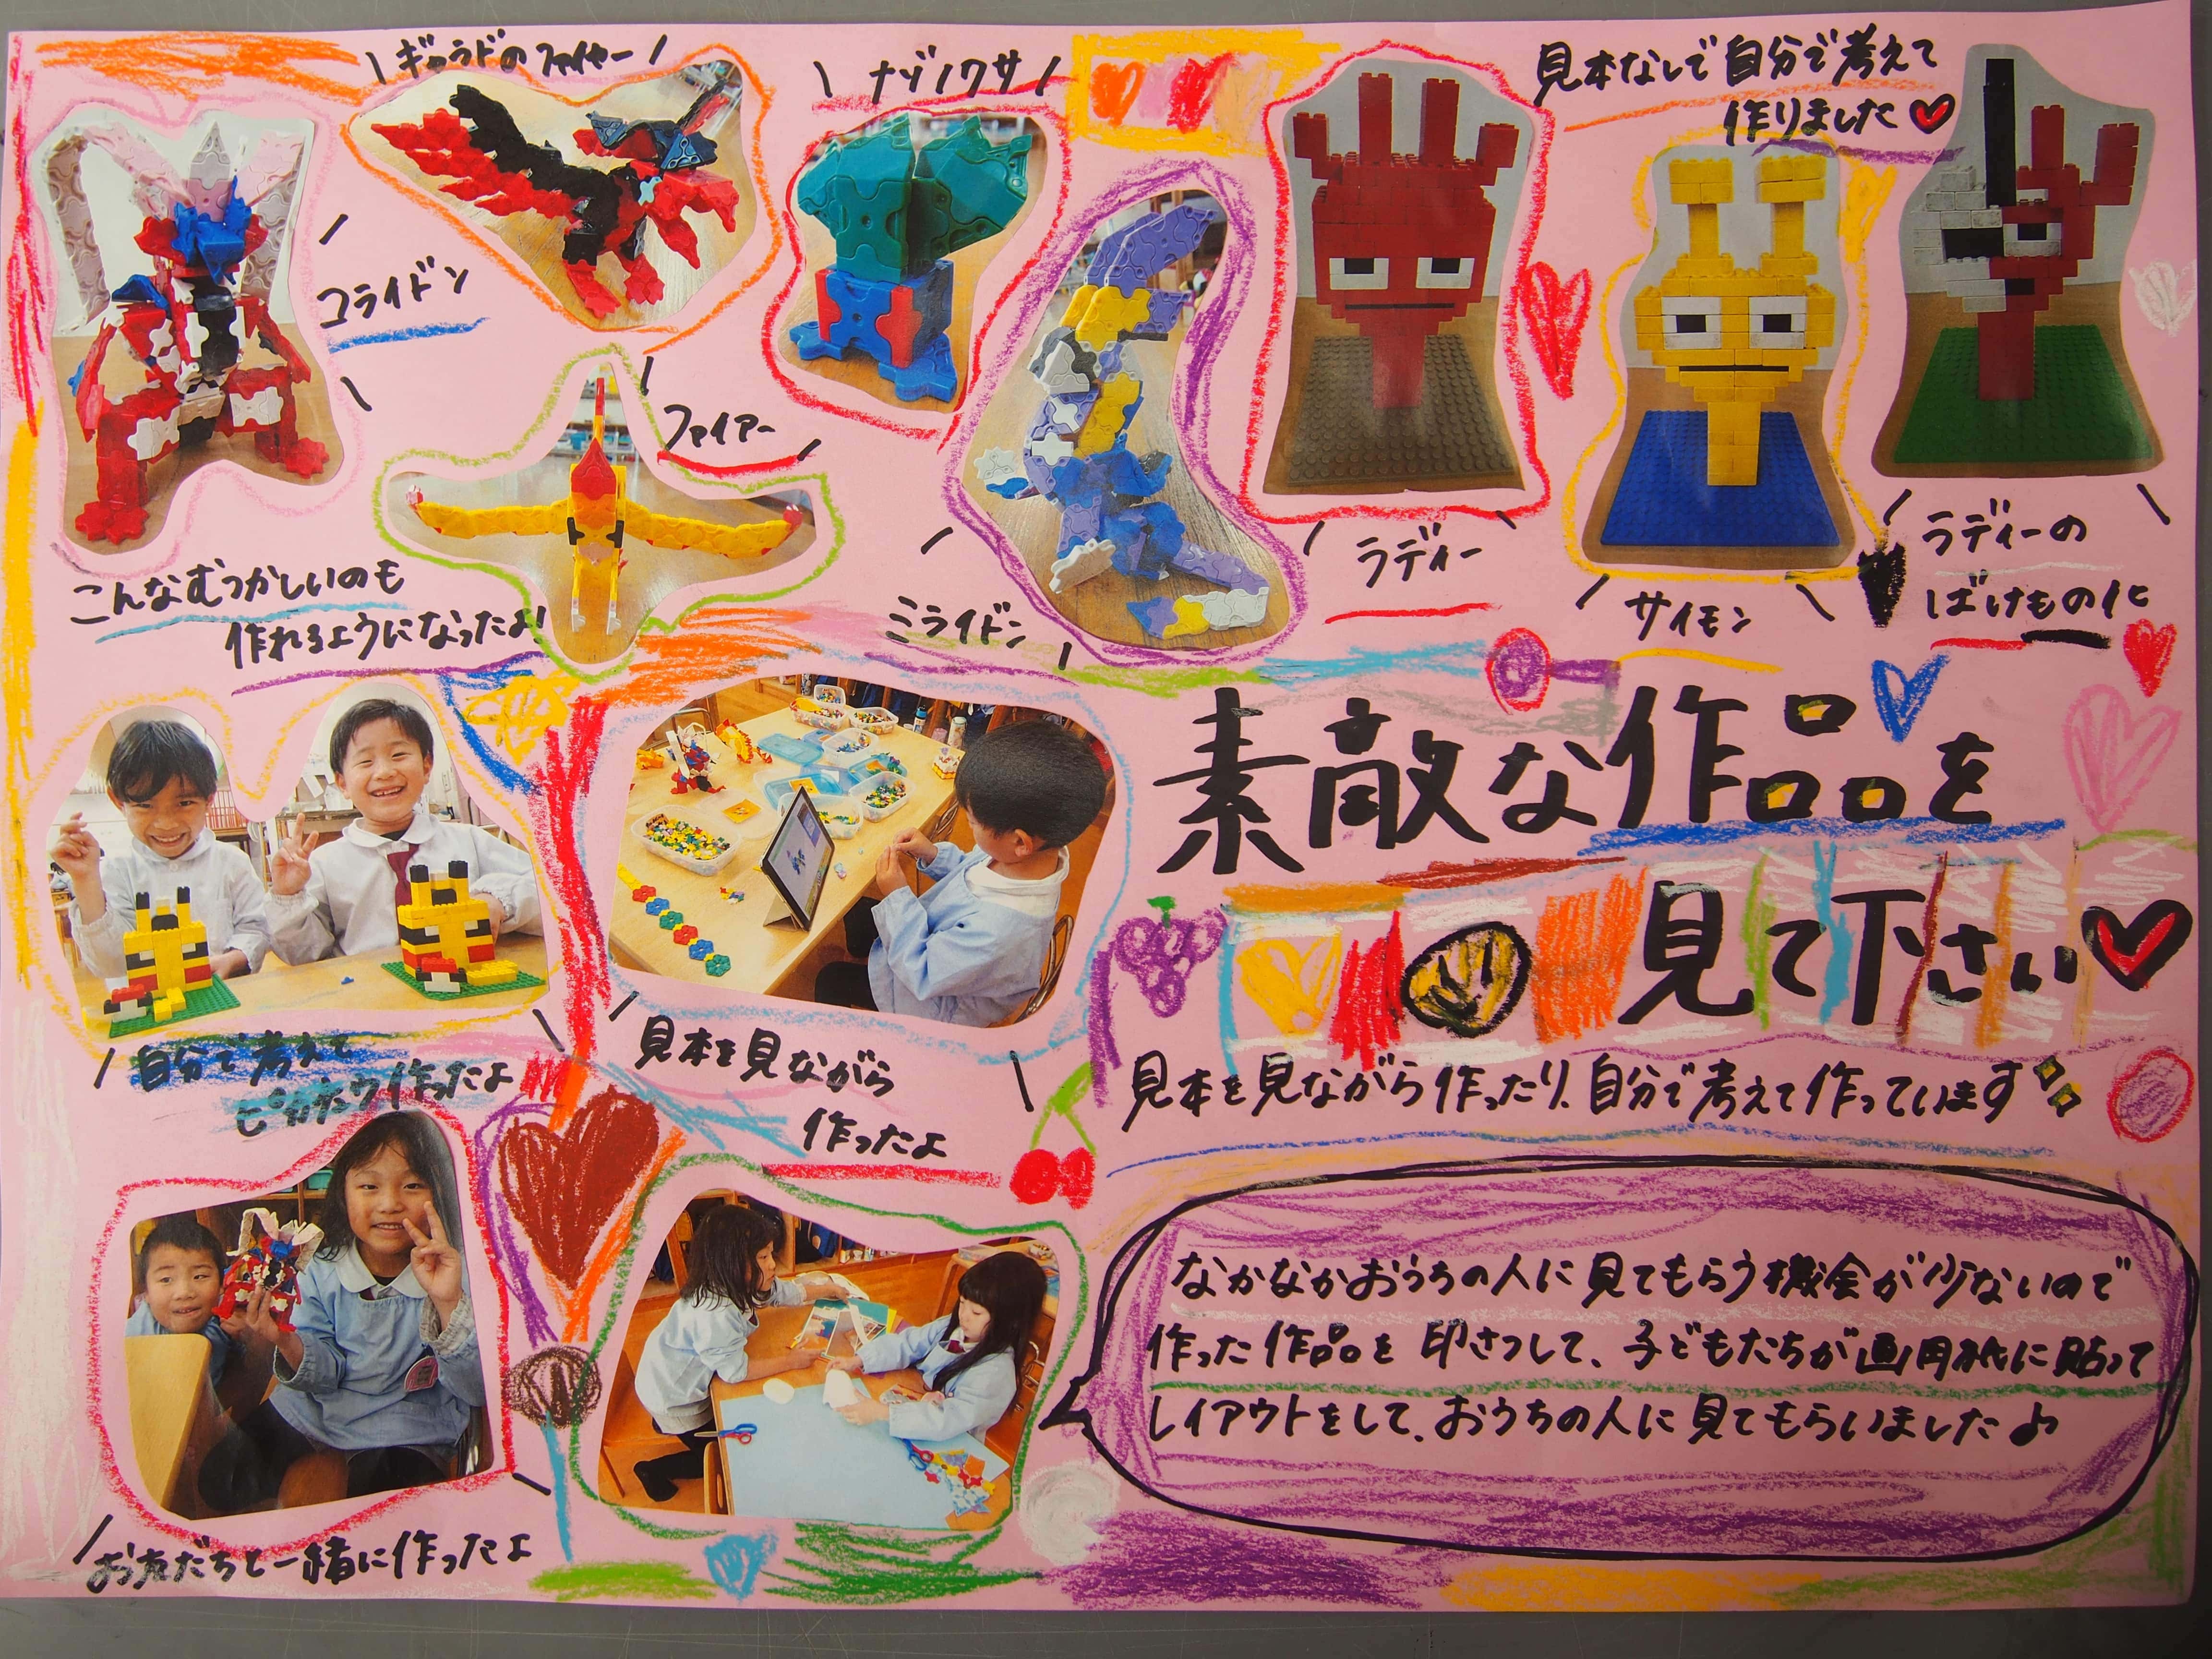 ギャラドのファイヤー
ナゾノクサ
見本なしで自分で考えて
作りました
コライドン
ファイアー
こんなむつかしいのも
作れるようになったよ!
ミライドン
ラディー
サイモン
ラディーの
ばけもの化
素敵な作品を
見て下さい
自分で考えて
ピカチュウ作ったよ
見本を見ながら
作ったよ
見本を見ながら作ったり、自分で考えて作っています
なかなかおうちの人に見てもらう機会が少ないので
作った作品を印さつして、子どもたちが画用紙に貼って
レイアウトをして、おうちの人に見てもらいました♪
お友だちと一緒に作ったよ